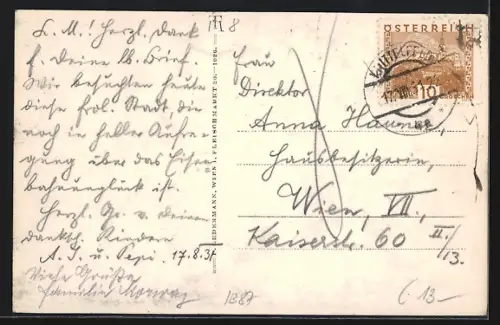 L. M.! Herzl. Dank
f. Deine lb. Brief.
Wir besuchten heute
diese frdl. Stadt, die
noch in heller Aufre-
gung über das Eisen-
bahnunglück ist.
Herzl. Gr. v. Deinen
dankb. Kindern
A. J. u. Pepi. 17.8.31
Viele Grüße
Familie
8
IEDERMANN, WIEN I, FLEISCHMARKT 28.
ÖSTERREICH
10
Frau
Direktor
Anna
Hausbesitzerin,
Wien, VII.,
Kaiserstr. 60 II./13.
1887
13-